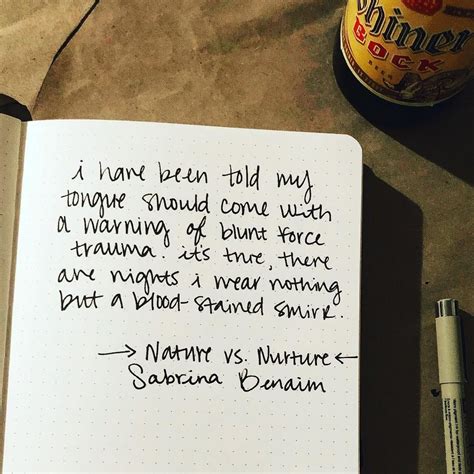 Shiner
BOCK
BEER
i have been told my
tongue should come with
a warning of blunt force
trauma. it's true, there
are nights i wear nothing
but a blood-stained smirk.
→ Nature vs. Nurture ←
Sabrina Benaim